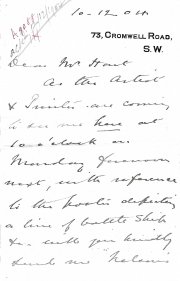 10-12-04
73, CROMWELL ROAD,
S.W.
Dear Mr Hart
As the Artist
& Printer are coming
to see me here at
10 o'clock on
Monday forenoon
next, with reference
to the poster depicting
a line of battle Ship
will you kindly
send me "Nelson's